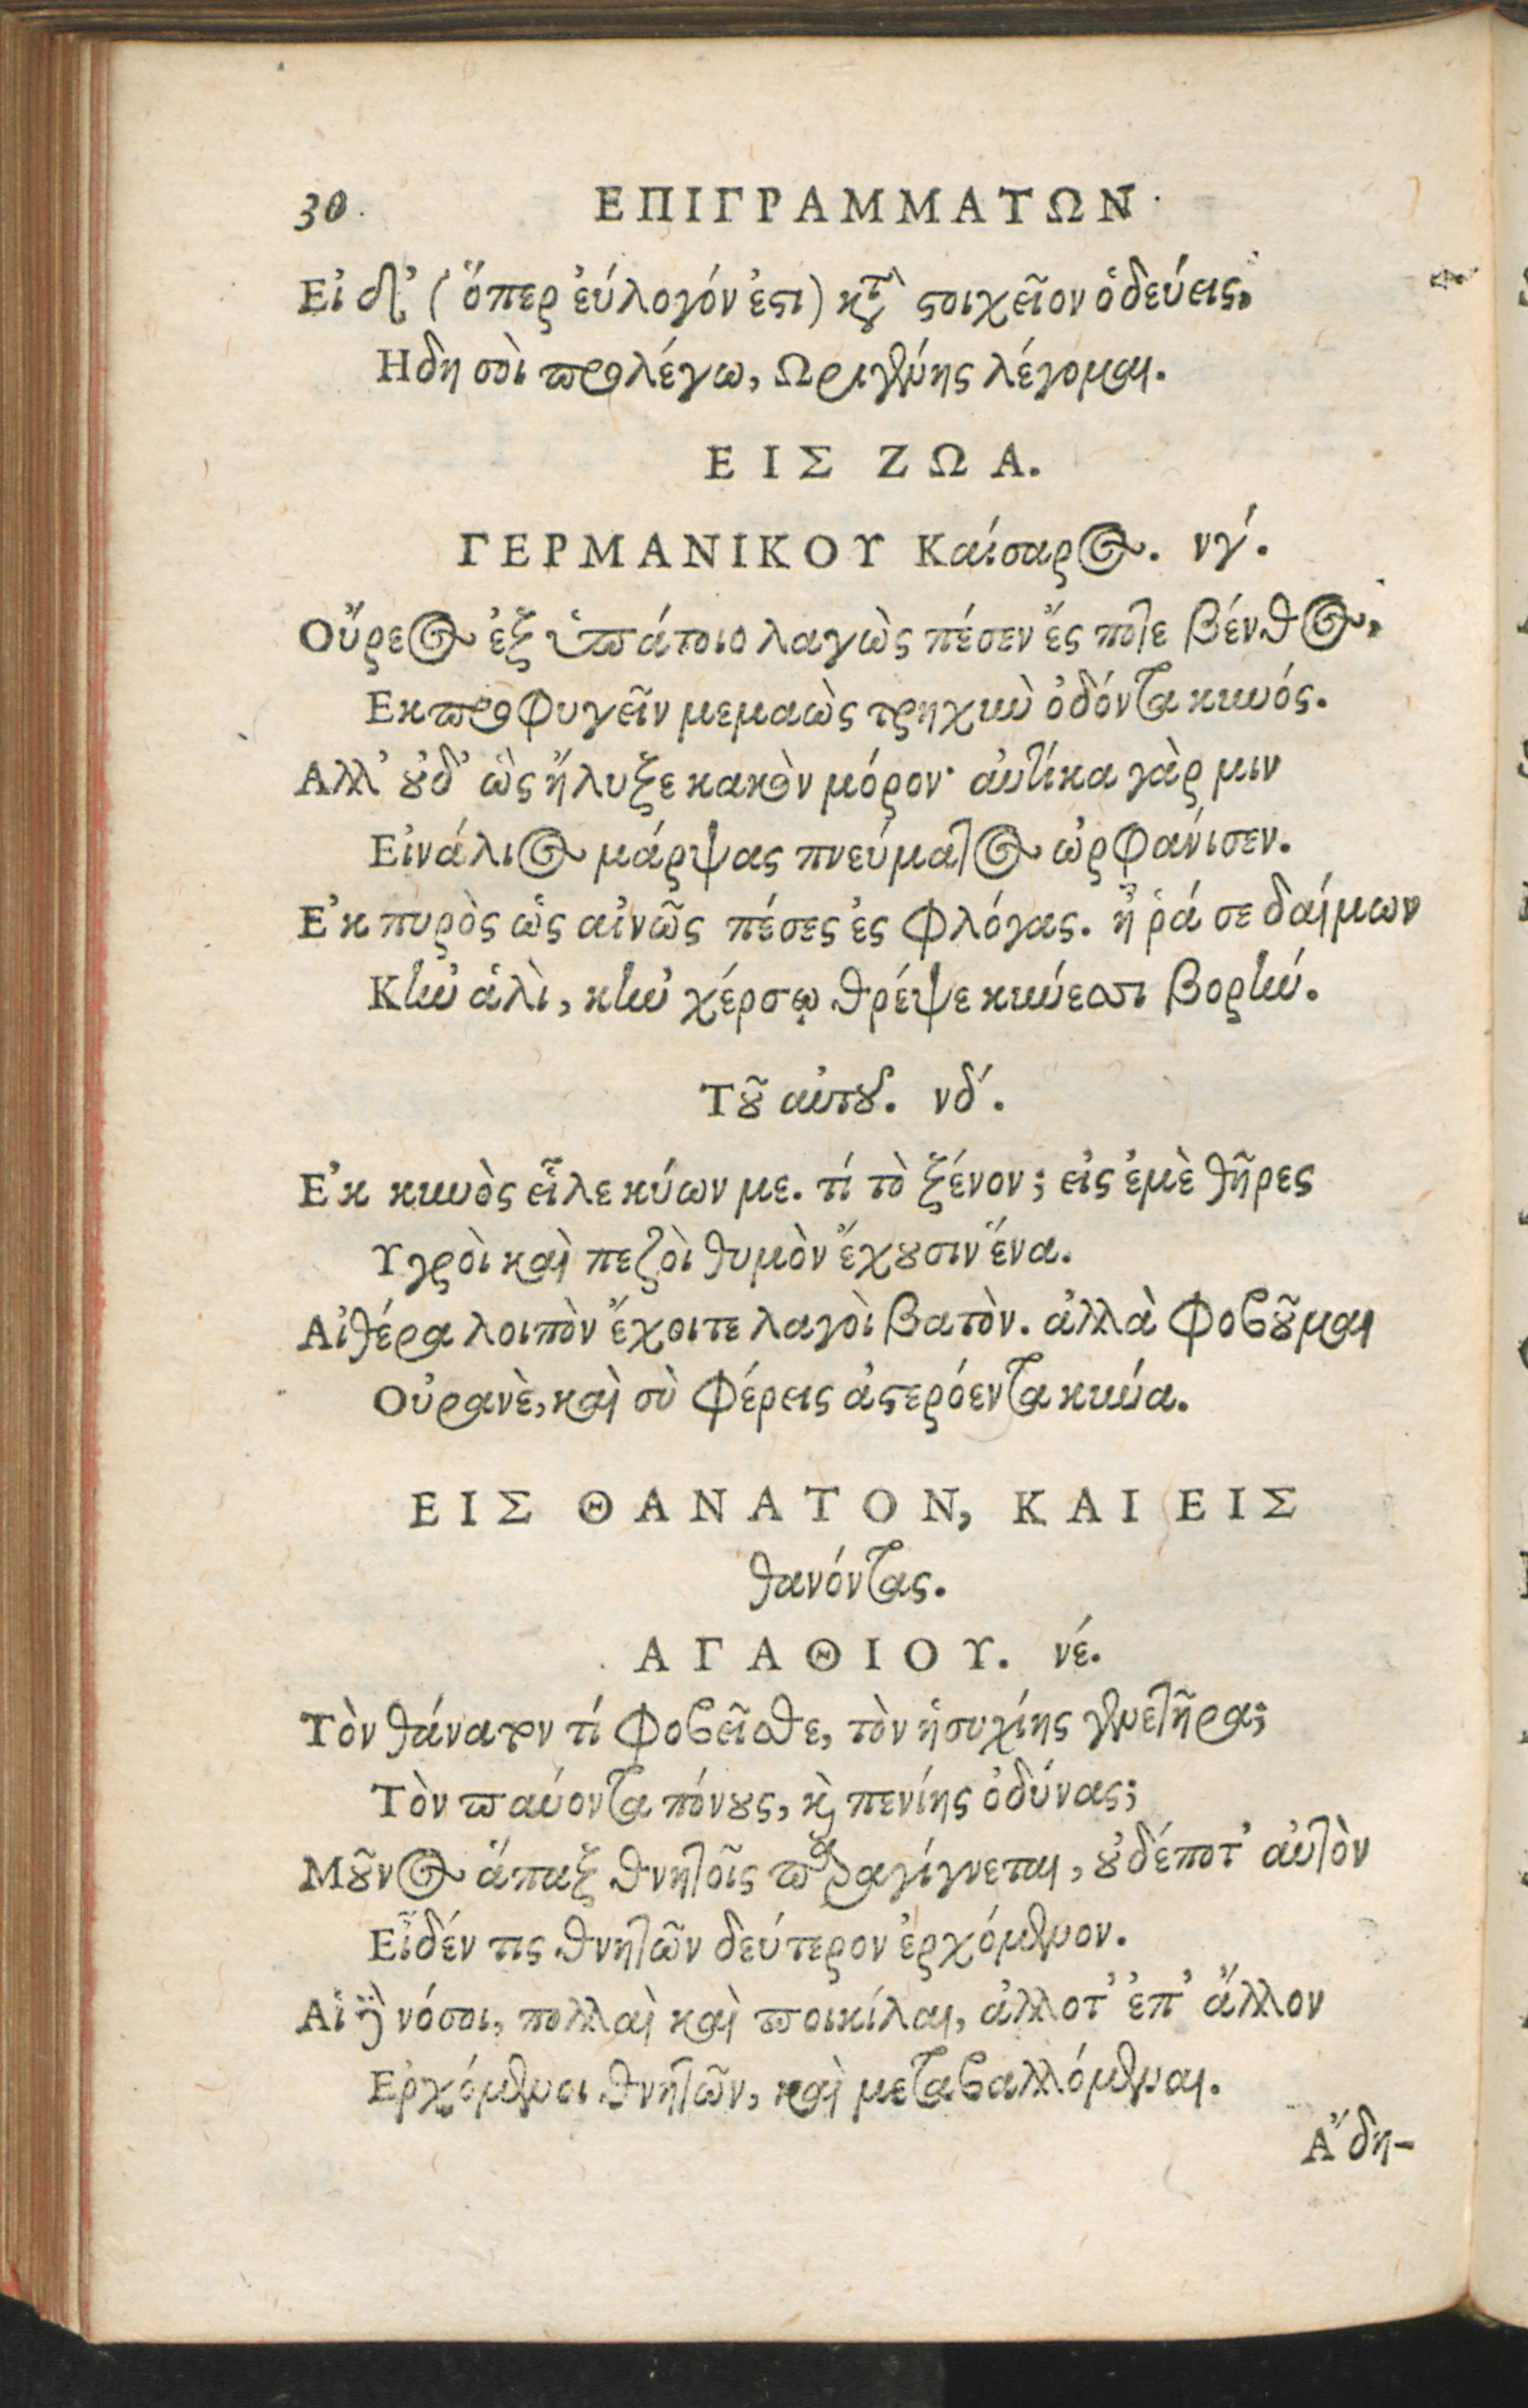 30 ΕΠΙΓΡΑΜΜΑΤΩΝ
Εἰ δὲ (ὅπερ εὐλογόν ἐστι) κατὰ στοιχεῖον ὁδεύεις,
Ηδη σοὶ προλέγω, Ωριγένης λέγομαι.
ΕΙΣ ΖΩΑ.
ΓΕΡΜΑΝΙΚΟΥ Καίσαρος. νγ΄.
Οὔρεος ἐξ ὑπάτοιο λαγὼς πέσεν ἔς ποτε βένθος,
Εκπροφυγεῖν μεμαὼς τρηχὺν ὀδόντα κυνός.
Αλλ᾽ οὐδ᾽ ὣς ἤλυξε κακὸν μόρον· αὐτίκα γάρ μιν
Εἰνάλιος μάρψας πνεύματος ὠρφάνισεν.
Ε᾽κ πυρὸς ὡς αἰνῶς πέσες ἐς φλόγας. ἦ ῥά σε δαίμων
Κἠν ἁλὶ, κἠν χέρσῳ θρέψε κύνεσσι βορήν.
Τοῦ αὐτοῦ. νδ΄.
Ε᾽κ κυνὸς εἷλε κύων με. τί τὸ ξένον; εἰς ἐμὲ θῆρες
Υγροὶ καὶ πεζοὶ θυμὸν ἔχουσιν ἕνα.
Αἰθέρα λοιπὸν ἔχοιτε λαγοὶ βατόν. ἀλλὰ φοβοῦμαι
Οὐρανὲ, καὶ σὺ φέρεις ἀστερόεντα κύνα.
ΕΙΣ ΘΑΝΑΤΟΝ, ΚΑΙ ΕΙΣ
θανόντας.
ΑΓΑΘΙΟΥ. νέ.
Τὸν θάνατον τί φοβεῖσθε, τὸν ἡσυχίης γενετῆρα;
Τὸν παύοντα πόνους, καὶ πενίης ὀδύνας;
Μοῦνος ἅπαξ θνητοῖς παραγίγνεται, οὐδέποτ᾽ αὐτὸν
Εἶδέν τις θνητῶν δεύτερον ἐρχόμενον.
Αἱ δὲ νόσοι, πολλαὶ καὶ ποικίλαι, ἄλλοτ᾽ ἐπ᾽ ἄλλον
Ερχόμεναι θνητῶν, καὶ μεταβαλλόμεναι.
Α῎δη-